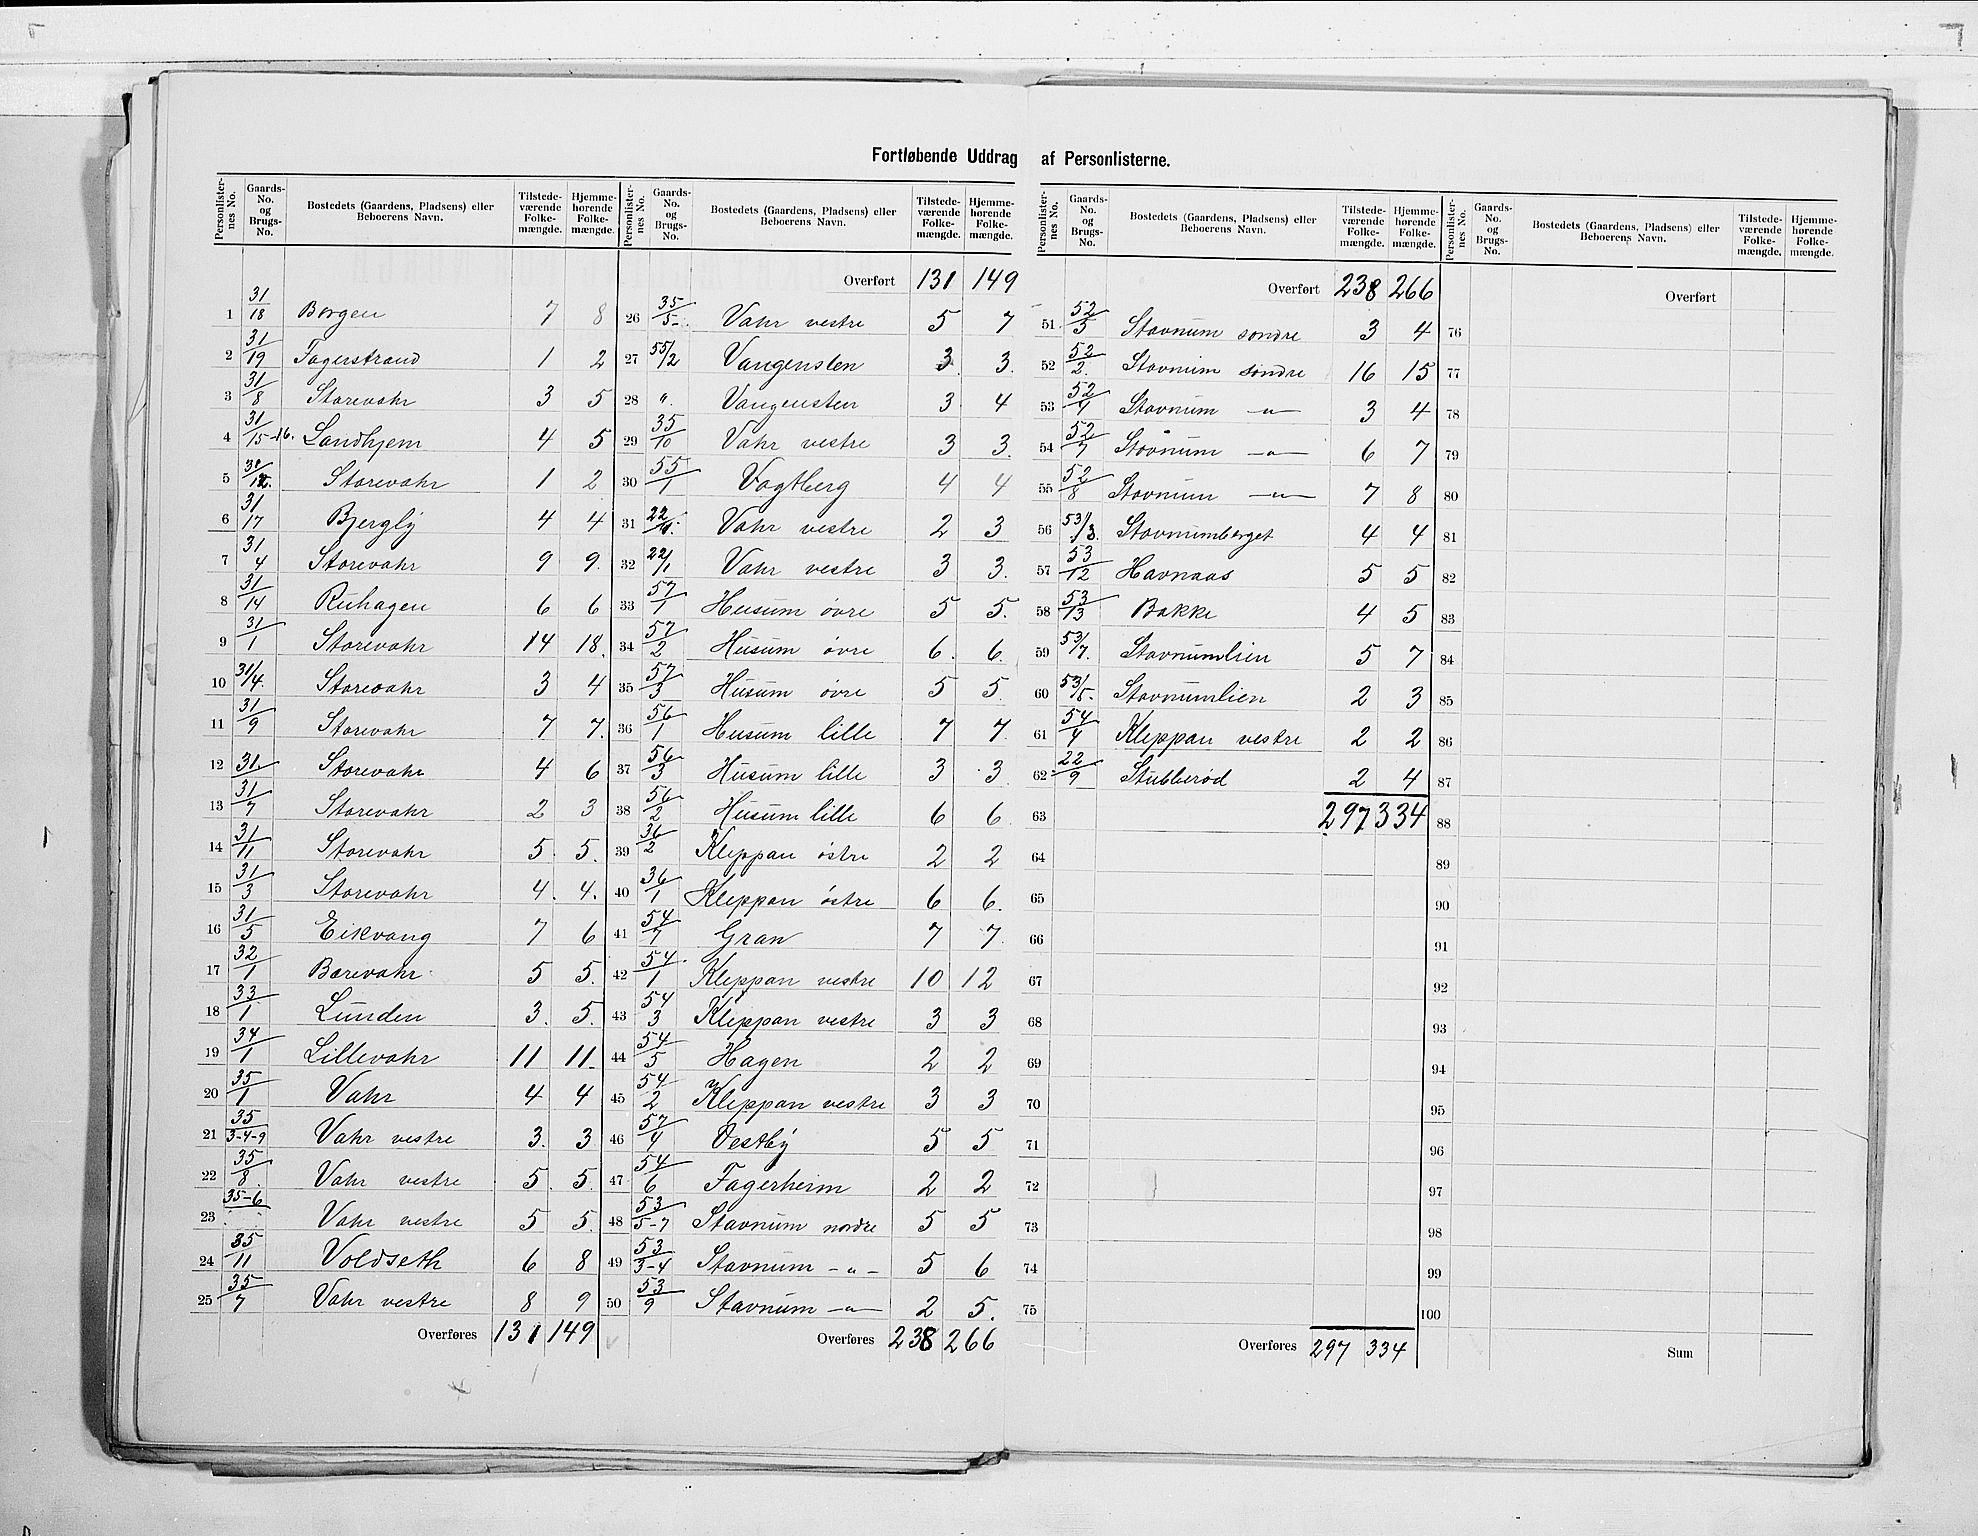 Fortløbende Uddrag af Personlisterne.
Personlisternes No. Gaards-No. og Brugs-No. Bostedets (Gaardens, Pladsens) eller Beboerens Navn. Tilstedeværende Folkemængde. Hjemmehørende Folkemængde.
1 31/18 Borgen 7 8
2 31/19 Fagerstrand 1 2
3 31/8 Storevahr 3 5
4 31/15-16. Landhjem 4 5
5 Storevahr 1 2
6 31/17 Bjergly 4 4
7 31/4 Storevahr 9 9.
8 31/14 Ruhagen 6 6
9 31/1 Storevahr 14 18.
10 31/4. Storevahr 3 4
11 31/9 Storevahr 7 7.
12 31. Storevahr 4 6
13 31/7 Storevahr 2 3
14 31/11 Storevahr 5. 5.
15 31/3 Storevahr 4. 4.
16 31/5 Eikvang 7 6
17 32/1 Barevahr 5 5.
18 33/1. Lunden 3. 5.
19 34/1 Lillevahr 11 11.
20 35/1 Vahr 4 4
21 35/3-4-9 Vahr vestre 3. 3
22 35/8. Vahr vestre 5. 5.
23 35-6 Vahr vestre 5 5.
24 35/11 Voldseth 6 8
25 35/7 Vahr vestre 8 9
Overføres 131 149
Personlisternes No. Gaards-No. og Brugs-No. Bostedets (Gaardens, Pladsens) eller Beboerens Navn. Tilstedeværende Folkemængde. Hjemmehørende Folkemængde.
Overført 131 149
26 35/5 Vahr vestre 5 7
27 55/2 Vangensten 3. 3.
28 " Vangensten 3 4
29 35/10 Vahr vestre 3 3.
30 55/1 Vagtberg 4 4
31 Vahr vestre 2 3
32 22/1 Vahr vestre 3 3.
33 57/1 Husum øvre 5 5.
34 57/2 Husum øvre 6. 6.
35 57/3 Husum øvre 5 5.
36 56/1 Husum lille 7 7
37 56/3 Husum lille 3 3.
38 56/2 Husum lille 6 6.
39 36/2 Kleppan østre 2 2
40 36/1 Kleppan østre 6 6.
41 54/7 Gran 7 7.
42 54/1 Kleppan vestre 10 12
43 54/3 Kleppan vestre 3 3
44 54/5 Hagen 2 2
45 54/2 Kleppan vestre 3 3
46 57/4 Vestby 5 5
47 54/6 Fagerheim 2 2
48 53/5-7 Stavnum nordre 5 5
49 53/3-4 Stavnum -"- 5 6
50 53/9 Stavnum -"- 2 5.
Overføres 238 266
Personlisternes No. Gaards-No. og Brugs-No. Bostedets (Gaardens, Pladsens) eller Beboerens Navn. Tilstedeværende Folkemængde. Hjemmehørende Folkemængde.
Overført 238 266
51 52/5 Stavnum søndre 3 4
52 52/2. Stavnum søndre 16 15
53 52/4 Stavnum -"- 3 4
54 52/7 Stavnum -"- 6 7
55 52/8 Stavnum -"- 7 8
56 53/3. Stavnumberget 4 4
57 53/12 Havnaas 5 5
58 53/13 Bakke 4 5
59 53/7. Stavnumlien 5 7
60 53/8. Stavnumlien 2 3
61 54/4 Kleppan vestre 2 2
62 22/9 Stubberød 2 4
63 297 334
64
65
66
67
68
69
70
71
72
73
74
75
Overføres 297 334
Personlisternes No. Gaards-No. og Brugs-No. Bostedets (Gaardens, Pladsens) eller Beboerens Navn. Tilstedeværende Folkemængde. Hjemmehørende Folkemængde.
Overført
76
77
78
79
80
81
82
83
84
85
86
87
88
89
90
91
92
93
94
95
96
97
98
99
100
Sum